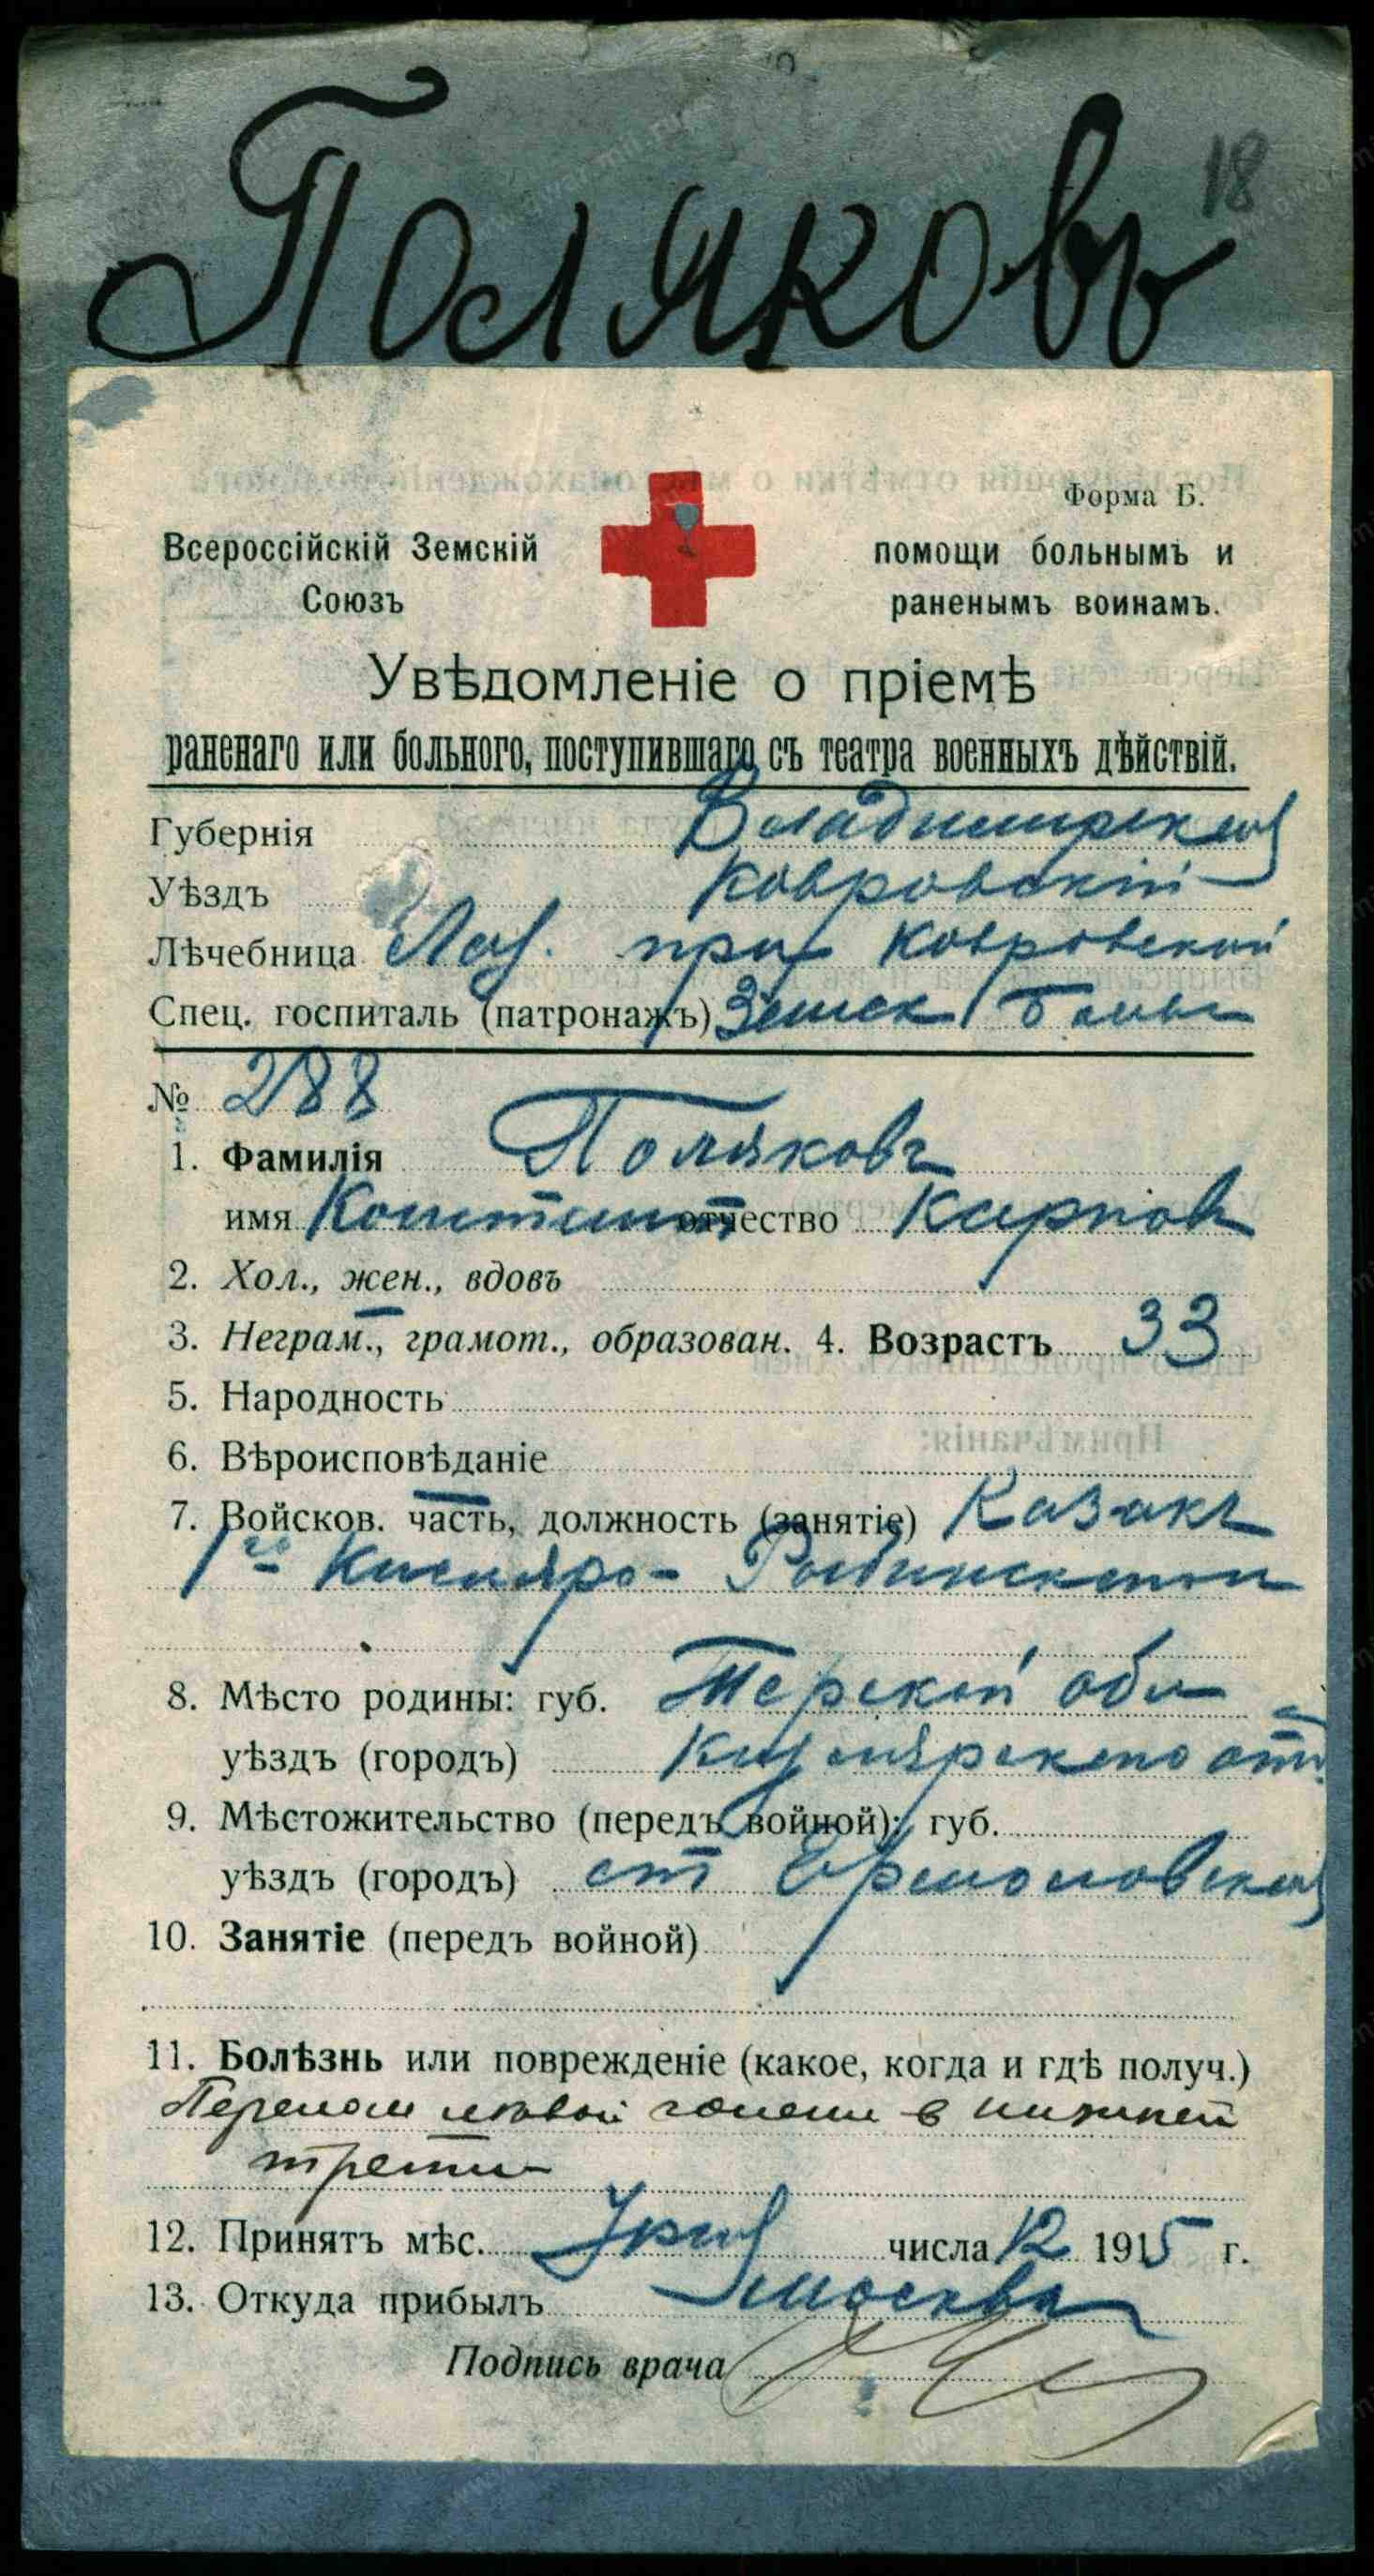 Поляковъ
18
Форма Б.
Всероссійскій Земскій
Союзъ
помощи больнымъ и
раненымъ воинамъ.
Увѣдомленіе о пріемѣ
раненаго или больного, поступившаго съ театра военныхъ дѣйствій.
Губернія Владимирская
Уѣздъ Ковровскій
Лѣчебница Лаз. при Ковровской
Спец. госпиталь (патронажъ) Земск
№ 288
1. Фамилія Поляковъ
имя отчество Карпов
2. Хол., жен., вдовъ
3. Неграм., грамот., образован. 4. Возрастъ 33
5. Народность
6. Вѣроисповѣданіе
7. Войсков. часть, должность (занятіе) Казакъ
1го Кизляро-
8. Мѣсто родины: губ. Терской обл
уѣздъ (городъ) Кизлярскаго отд
9. Мѣстожительство (передъ войной): губ.
уѣздъ (городъ) ст Ермоловская
10. Занятіе (передъ войной)
11. Болѣзнь или поврежденіе (какое, когда и гдѣ получ.)
Перелом левой голени в нижней
трети
12. Принятъ мѣс. числа 12 1915 г.
13. Откуда прибылъ Москва
Подпись врача